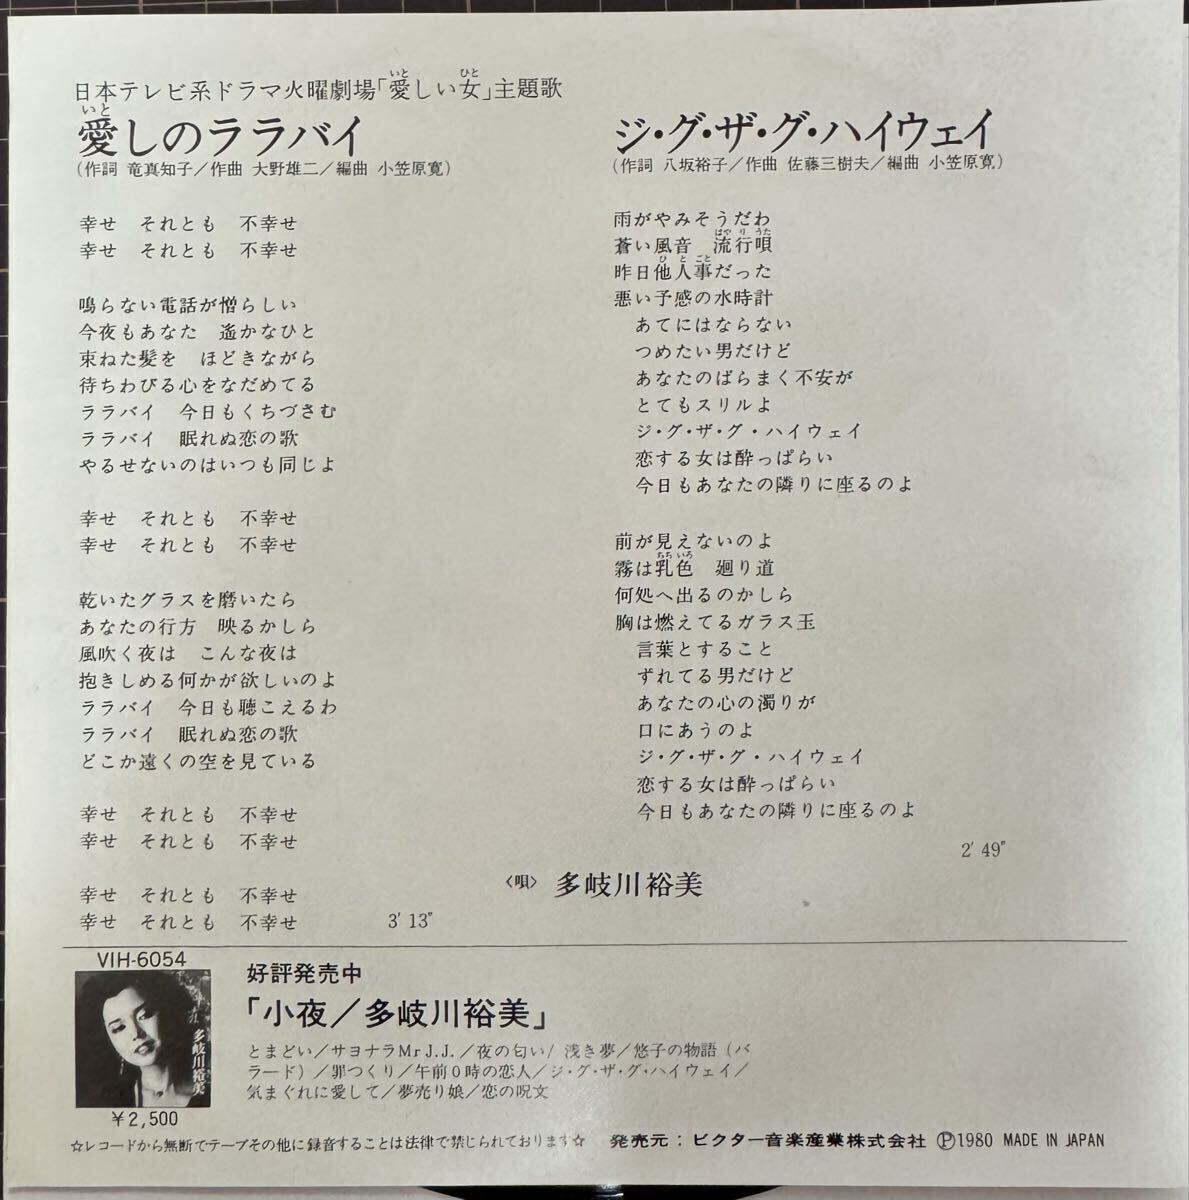 日本テレビ系ドラマ火曜劇場「愛しい女」主題歌
愛しのララバイ
(作詞 竜真知子／作曲 大野雄二／編曲 小笠原寛)
幸せ　それとも　不幸せ
幸せ　それとも　不幸せ
鳴らない電話が憎らしい
今夜もあなた　遙かなひと
束ねた髪を　ほどきながら
待ちわびる心をなだめてる
ララバイ　今日もくちづさむ
ララバイ　眠れぬ恋の歌
やるせないのはいつも同じよ
幸せ　それとも　不幸せ
幸せ　それとも　不幸せ
乾いたグラスを磨いたら
あなたの行方　映るかしら
風吹く夜は　こんな夜は
抱きしめる何かが欲しいのよ
ララバイ　今日も聴こえるわ
ララバイ　眠れぬ恋の歌
どこか遠くの空を見ている
幸せ　それとも　不幸せ
幸せ　それとも　不幸せ
幸せ　それとも　不幸せ
幸せ　それとも　不幸せ
3′13″
ジ・グ・ザ・グ・ハイウェイ
(作詞 八坂裕子／作曲 佐藤三樹夫／編曲 小笠原寛)
雨がやみそうだわ
蒼い風音　流行唄
昨日他人事だった
悪い予感の水時計
あてにはならない
つめたい男だけど
あなたのばらまく不安が
とてもスリルよ
ジ・グ・ザ・グ・ハイウェイ
恋する女は酔っぱらい
今日もあなたの隣りに座るのよ
前が見えないのよ
霧は乳色　廻り道
何処へ出るのかしら
胸は燃えてるガラス玉
言葉とすること
ずれてる男だけど
あなたの心の濁りが
口にあうのよ
ジ・グ・ザ・グ・ハイウェイ
恋する女は酔っぱらい
今日もあなたの隣りに座るのよ
2′49″
〈唄〉 多岐川裕美
VIH-6054
多岐川裕美
￥2,500
好評発売中
「小夜／多岐川裕美」
とまどい／サヨナラMr J.J.／夜の匂い/ 浅き夢／悠子の物語 (バ
ラード) ／罪つくり／午前0時の恋人／ジ・グ・ザ・グ・ハイウェイ／
気まぐれに愛して／夢売り娘／恋の呪文
☆レコードから無断でテープその他に録音することは法律で禁じられております☆　発売元：ビクター音楽産業株式会社 Ⓟ1980 MADE IN JAPAN